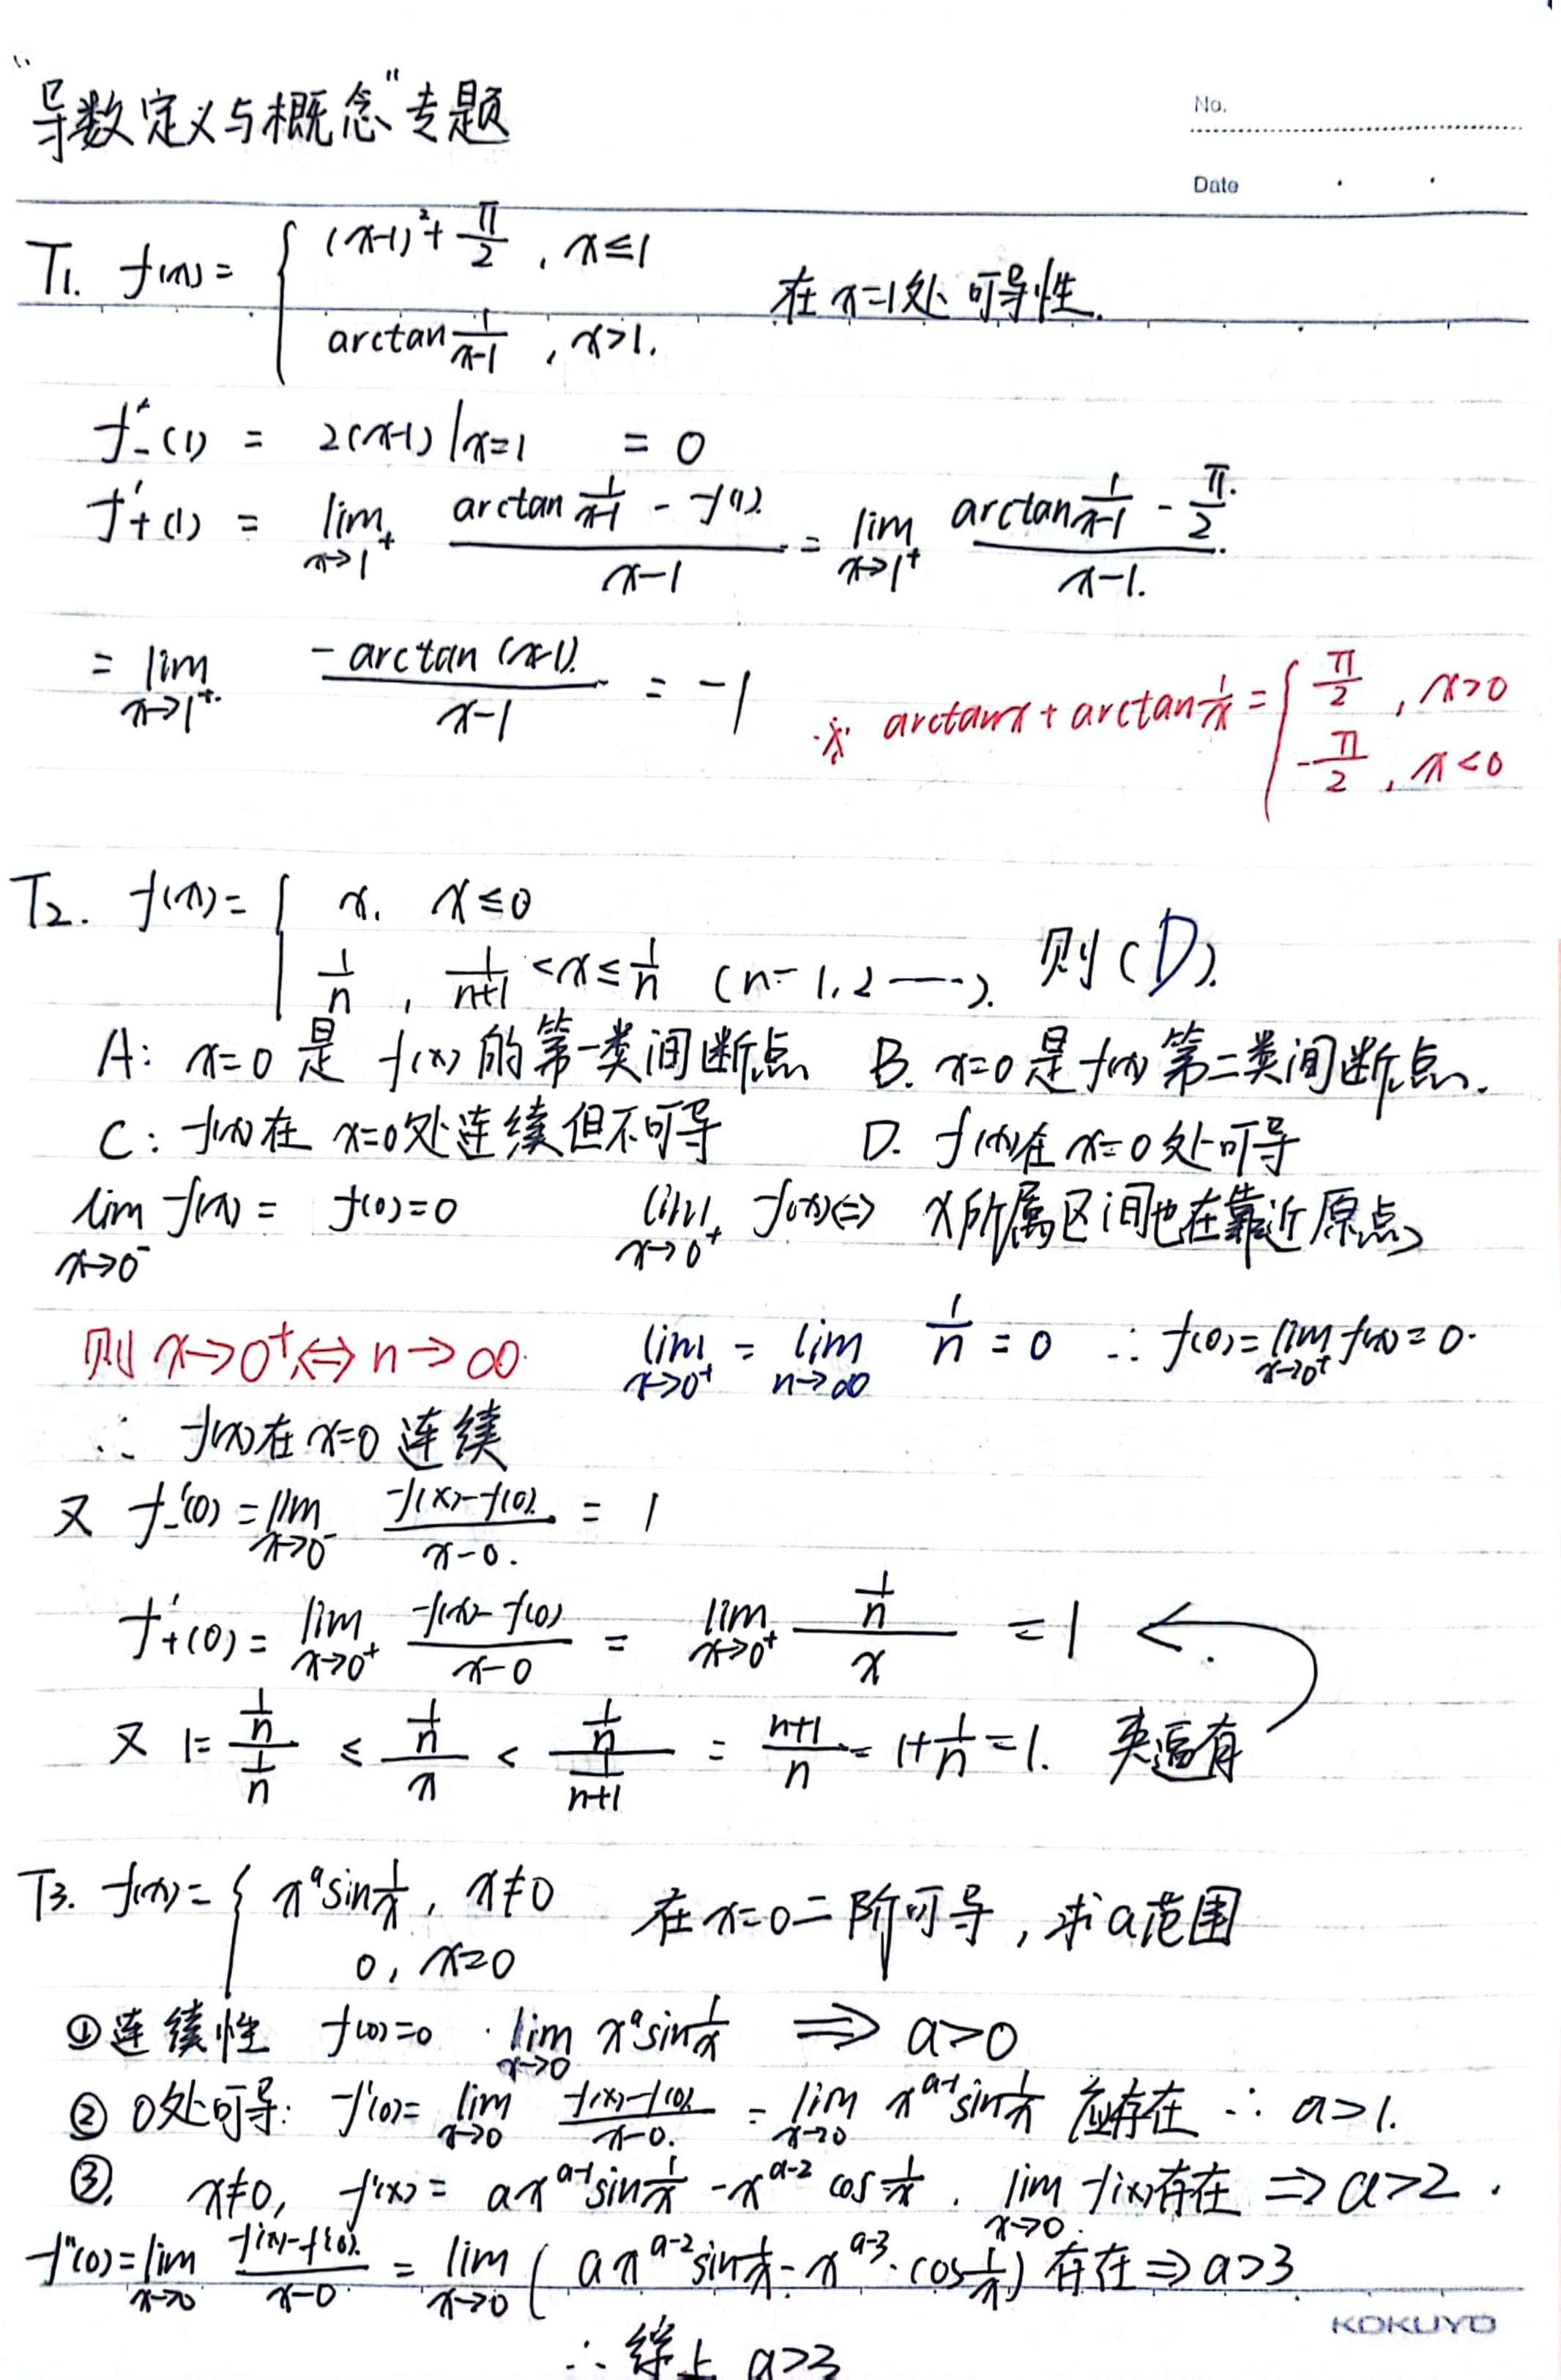 “导数定义与概念”专题
No.
Date
T1. f(x) = { (x-1)²+π/2 , x≤1
arctan 1/(x-1) , x>1. 在x=1处可导性.
f'-(1) = 2(x-1)|x=1 = 0
f'+(1) = lim x→1+ (arctan 1/(x-1) - f(1))/(x-1) = lim x→1+ (arctan 1/(x-1) - π/2)/(x-1).
= lim x→1+ (-arctan(x-1))/(x-1) = -1
※ arctanx + arctan 1/x = { π/2 , x>0
-π/2 , x<0
T2. f(x) = { x, x≤0
1/n , 1/(n+1) <x≤ 1/n (n=1,2……). 则(D).
A: x=0是 f(x)的第一类间断点 B. x=0是f(x)第二类间断点.
C: f(x)在 x=0处连续但不可导 D. f(x)在x=0处可导
lim x→0- f(x) = f(0)=0 lim x→0+ f(x)⇔ x所属区间也在靠近原点
则x→0+⇔n→∞ lim x→0+ = lim n→∞ 1/n = 0 ∴ f(0)=lim x→0+ f(x)=0.
∴ f(x)在x=0连续
又 f-'(0) = lim x→0- (f(x)-f(0))/(x-0) = 1
f'+(0) = lim x→0+ (f(x)-f(0))/(x-0) = lim x→0+ (1/n)/x = 1
又 1= (1/n)/(1/n) ≤ (1/n)/x < (1/n)/(1/(n+1)) = (n+1)/n = 1+1/n =1. 夹逼有
T3. f(x) = { x^a sin 1/x , x≠0
0, x=0 在x=0二阶可导,求a范围
①连续性 f(0)=0 · lim x→0 x^a sin 1/x ⇒ a>0
② 0处可导: f'(0)= lim x→0 (f(x)-f(0))/(x-0) = lim x→0 x^(a-1) sin 1/x 应存在 ∴ a>1.
③. x≠0, f'(x) = ax^(a-1) sin 1/x - x^(a-2) cos 1/x . lim x→0 f'(x)存在 ⇒ a>2 .
f''(0)=lim x→0 (f'(x)-f'(0))/(x-0) = lim x→0 ( ax^(a-2) sin 1/x - x^(a-3)·cos 1/x ) 存在⇒a>3
KOKUYO
∴ 综上 a>3